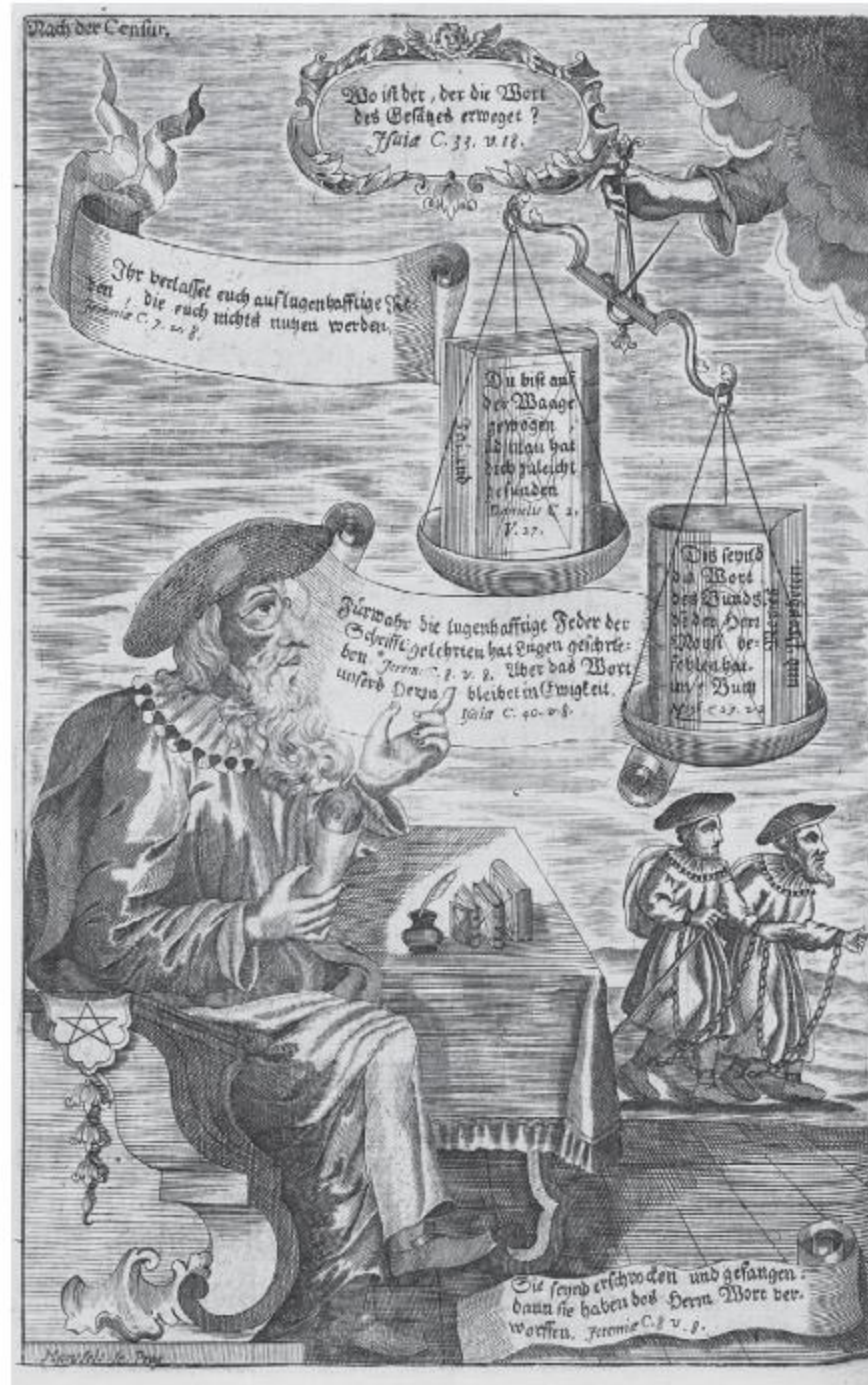 Nach der Censur.
Wo ist der, der die Wort
des Gesätzes erweget?
Isaiæ C. 33. v. 18.
Ihr verlasset euch auf lugenhafftige Re-
den, die euch nichts nutzen werden.
Jeremiæ C. 7. v. 8.
Du bist auf
der Waage
gewogen,
und man hat
dich zuleicht
gefunden
Danielis C.
V. 27.
Talmud
Dis seynd
die Wort
des Bunds,
die der Herr
Moysi be-
fohlen hat.
Buch
Moyses
und Propheten.
Fürwahr die lugenhafftige Feder der
Schrifftgelehrten hat Lugen geschrie-
ben Jerem: C. 8. v. 8. Aber das Wort
unsers Herrn bleibet in Ewigkeit.
Isaiæ C. 40. v. 8.
Sie seynd erschrocken und gefangen:
dann sie haben des Herrn Wort ver-
worffen. Jeremiæ C. 8 v. 8.